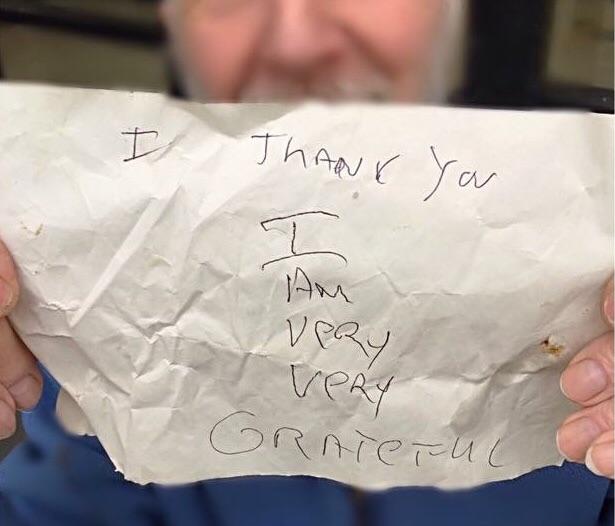 I THANK YOU
I
AM
VERY
VERY
GRATEFUL